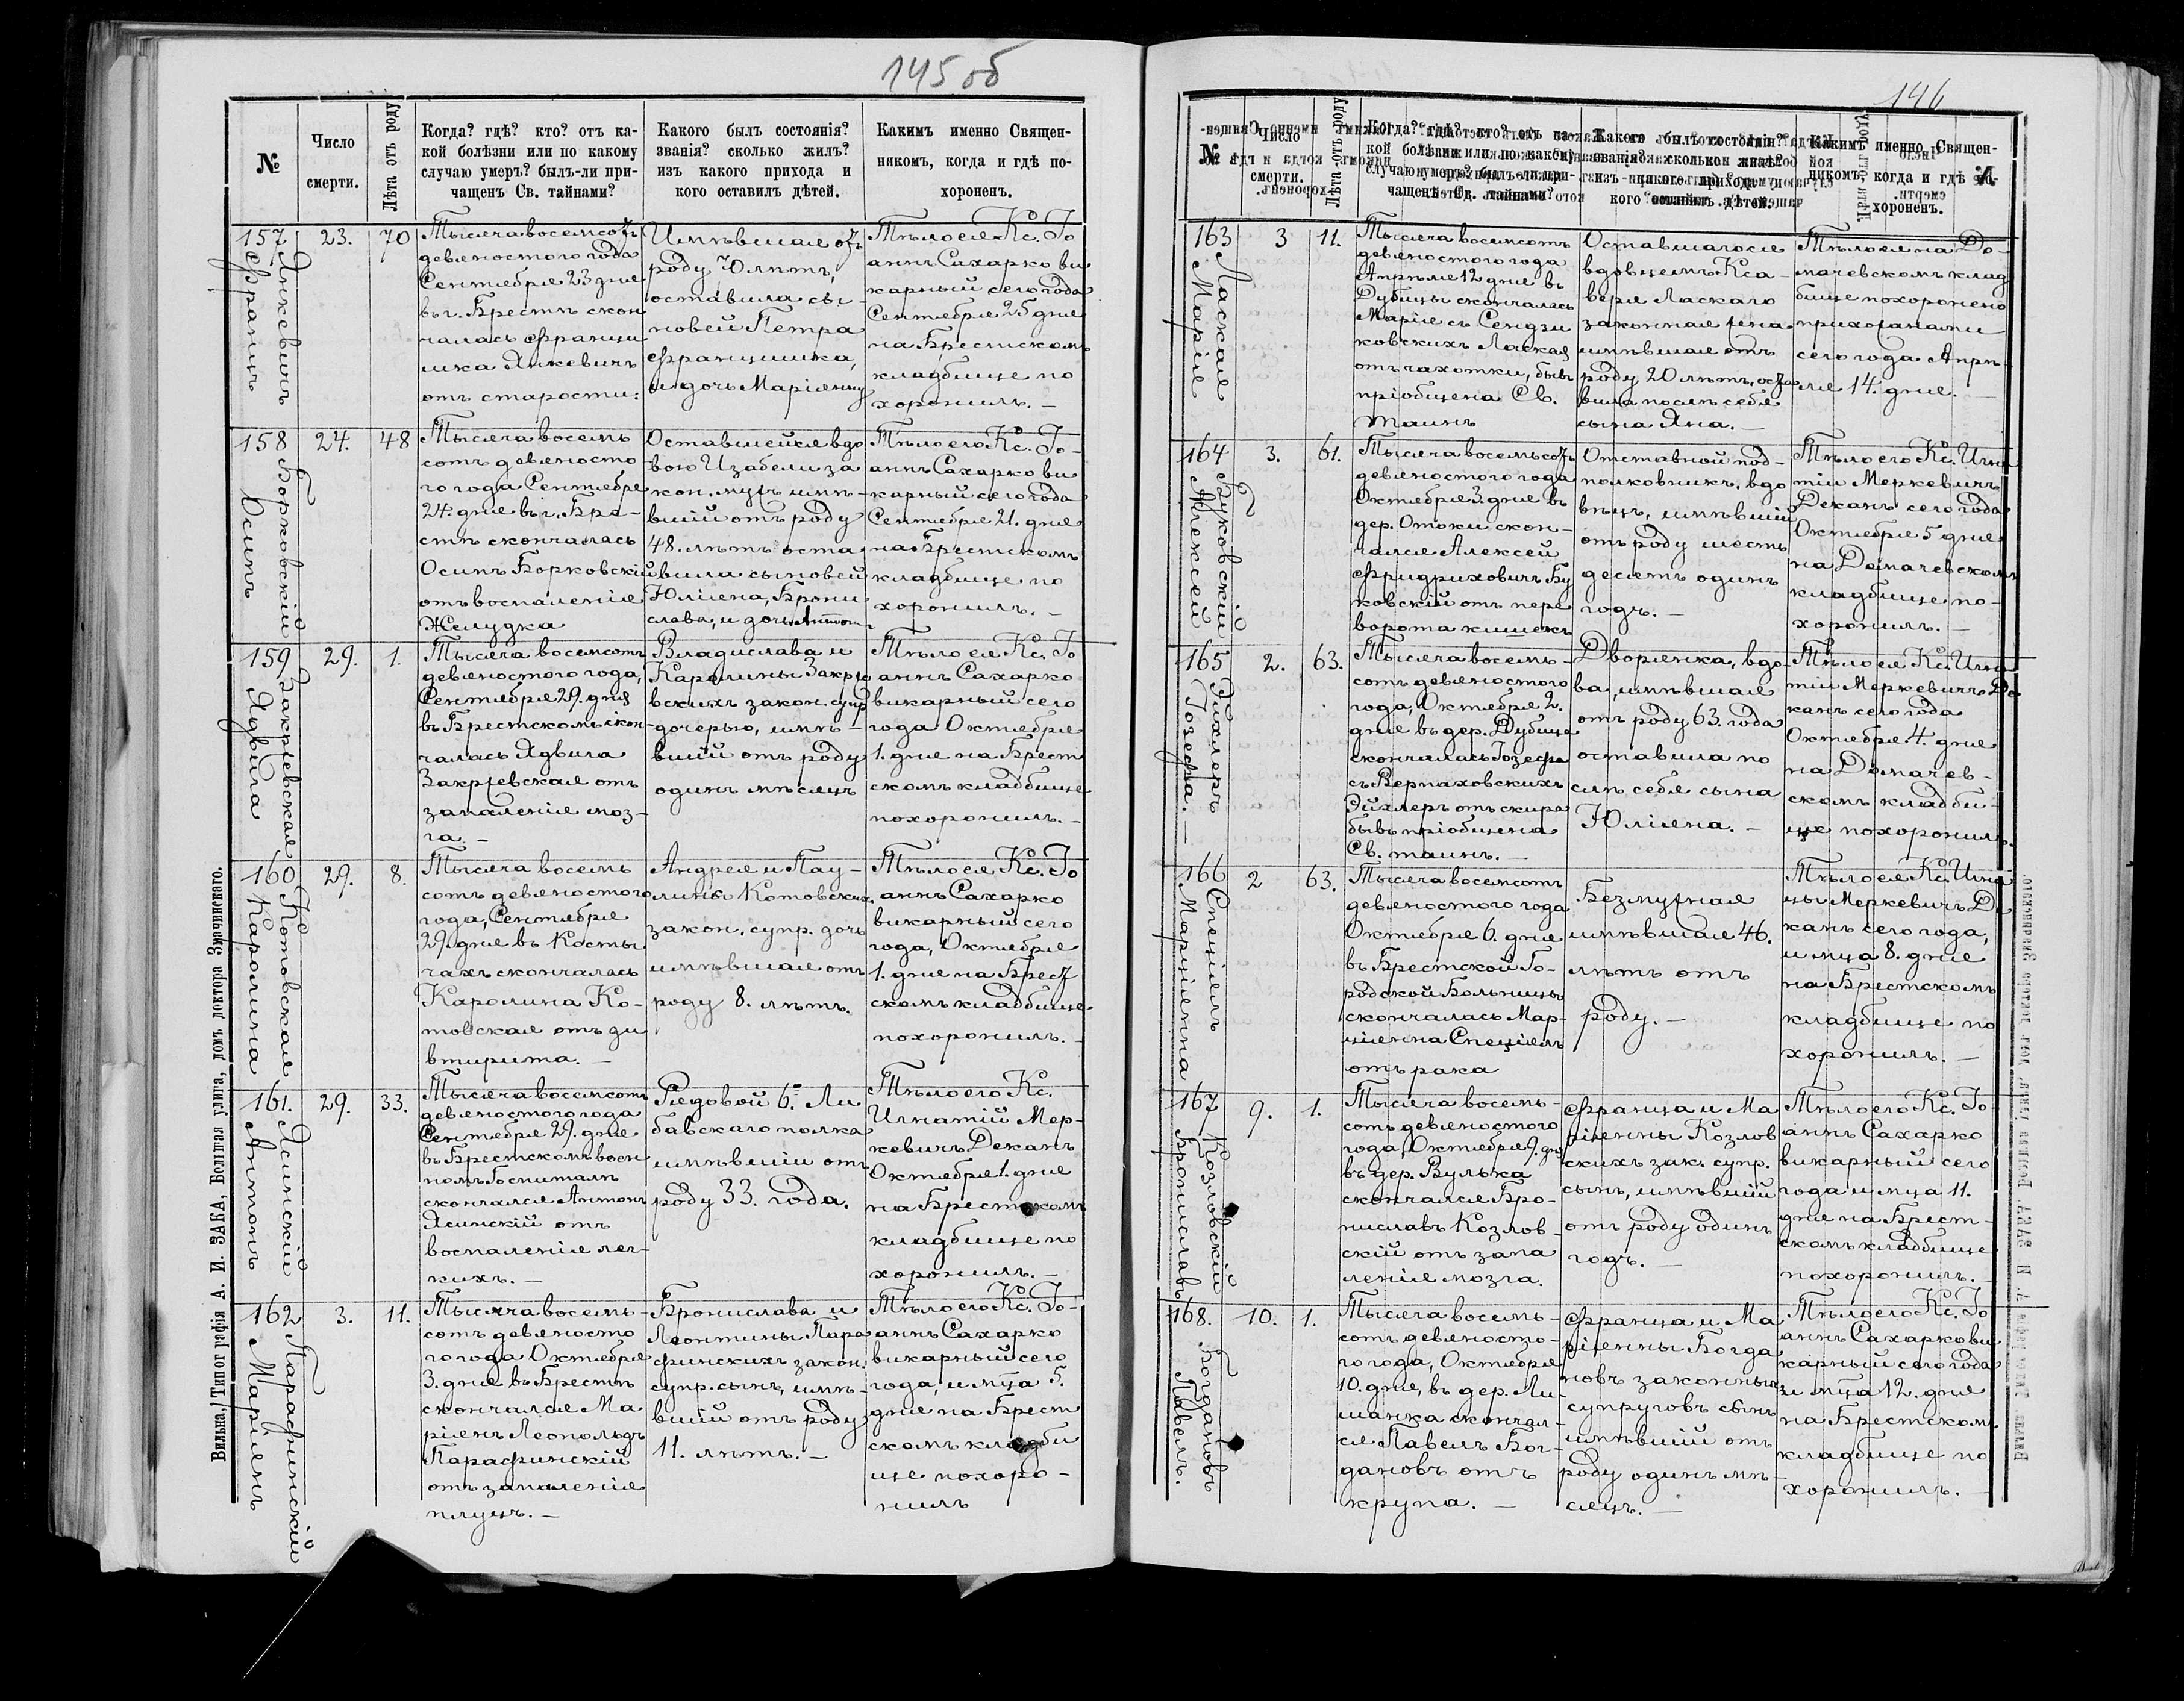 145 об
№
Число
смерти.
Лѣта отъ роду
Когда? гдѣ? кто? отъ ка-
кой болѣзни или по какому
случаю умеръ? былъ-ли при-
чащенъ Св. тайнами?
Какого былъ состоянія?
званія? сколько жилъ?
изъ какого прихода и
кого оставилъ дѣтей.
Какимъ именно Священ-
никомъ, когда и гдѣ по-
хороненъ.
157
Янкевичъ
Францъ
23.
70
Тысяча восемсотъ
девяностого года
Сентября 23 дня
въ г. Брестѣ скон
чалась Францы
шка Янкевичъ
отъ старости:
Имѣвшая отъ
роду 70 лѣтъ,
оставила сы-
новей Петра
Францишка,
и дочь Маріянну
Тѣло ея Кс. Іо
аннъ Сахарко ви
карный сего года
Сентября 25 дня
на Брестскомъ
кладбище по
хоронилъ. —
158
Борковскій
Осипъ
24.
48
Тысяча восемь
сотъ девяносто
го года Сентября
24. дня въ г. Бре-
стѣ скончалась
Осипъ Борковскій
отъ воспаленія
Желудка
Оставшейся вдо
вою Изабели за
кон. мужъ имѣ-
вшій отъ роду
48. лѣтъ оста
вила сыновей
Юліяна, Брони
слава, и дочь Антон
Тѣло его Кс. Іо-
аннъ Сахарко ви
карный сего года
Сентября 21. дня
на Брестскомъ
кладбище по
хоронилъ. —
159
Закржевская
Ядвига
29.
1.
Тысяча восемсотъ
девяностого года,
Сентября 29. дня
въ Брестскомъ скон
чалась Ядвига
Закржевская отъ
запаленія моз-
га. —
Владислава и
Каролины Закрже
вскихъ закон. супр
дочерью, имѣ-
вшій отъ роду
одинъ мѣсяцъ
Тѣло ея Кс. Іо
аннъ Сахарко
викарный сего
года Октября
1. дня на Брест
скомъ кладбище
похоронилъ. —
160
Котовская
Каролина
29.
8.
Тысяча восемь
сотъ девяностого
года, Сентября
29. дня въ Косты
чахъ скончалась
Каролина Ко-
товская отъ ди
втирита. —
Андрея и Пау-
лины Котовскихъ
закон. супр. дочь
имѣвшая отъ
роду 8. лѣтъ.
Тѣло ея Кс. Іо
аннъ Сахарко
викарный сего
года, Октября
1. дня на Брест
скомъ кладбище
похоронилъ. —
161.
Ясинскій
Антонъ
29.
33.
Тысяча восемсотъ
девяностого года
Сентября 29. дня
въ Брестскомъ воен
номъ Госпиталѣ
скончался Антонъ
Ясинскій отъ
воспаленія лег-
кихъ. —
Рядовой 6. Ли
бавскаго полка
имѣвшій отъ
роду 33. года.
Тѣло его Кс.
Игнатій Мер-
кевичъ Деканъ
Октября 1. дня
на Брестскомъ
кладбище по
хоронилъ. —
162
Парафинскій
Маріянъ
3.
11.
Тысяча восемь-
сотъ девяносто
го года Октября
3. дня въ Брестѣ
скончался Ма
ріянъ Леопольдъ
Парафинскій
отъ запаленія
плуцъ. —
Бронислава и
Леонтины Пара
финскихъ закон.
супр. сынъ, имѣ-
вшій отъ роду
11. лѣтъ. —
Тѣло его Кс. Іо-
аннъ Сахарко
викарный сего
года, и мца 5.
дня на Брест
скомъ кладби
ще похоро-
нилъ
Вильна, Типографія А. И. ЗАКА, Большая улица, домъ доктора Значинскаго.
146
№
Число
смерти.
Лѣта отъ роду
Когда? гдѣ? кто? отъ ка-
кой болѣзни или по какому
случаю умеръ? былъ-ли при-
чащенъ Св. тайнами?
Какого былъ состоянія?
званія? сколько жилъ?
изъ какого прихода и
кого оставилъ дѣтей.
Какимъ именно Священ-
никомъ, когда и гдѣ по-
хороненъ.
163
Лаская
Марія
3
11.
Тысяча восемсотъ
девяностого года
Апрѣля 12 дня въ
Дубицы скончалась
Марія съ Сендзи
ковскихъ Лаская
отъ чахотки, бывъ
пріобщена Св.
Таинъ
Оставшагося
вдовцемъ Кса-
верія Ласкаго
законная жена
имѣвшая отъ
роду 20 лѣтъ, оста
вила послѣ себя
сына Яна. —
Тѣло ея на До-
мачевскомъ клад
бище похоронено
прихожанами
сего года Апрѣ-
ля 14. дня. —
164
Буковскій
Алексей
3.
61.
Тысяча восемьсотъ
девяностого года
Октября 3. дня въ
дер. Отоки скон-
чался Алексей
Фридриховичъ Бу
ковскій отъ пере
ворота кишекъ
Отставной под-
полковникъ, вдо
вецъ, имѣвшій
отъ роду шесть
десятъ одинъ
годъ. —
Тѣло его Кс. Игна
тій Меркевичъ
Деканъ сего года
Октября 5 дня
на Домачевскомъ
кладбище по-
хоронилъ. —
165
Эйхлеръ
Іозефа. —
2.
63.
Тысяча восемь-
сотъ девяностого
года, Октября 2.
дня въ дер. Дубице
скончалась Іозефа
съ Верпаховскихъ
Эйхлеръ отъ скира
бывъ пріобщена
Св. таинъ. —
Дворянка, вдо-
ва, имѣвшая
отъ роду 63. года
оставила по
слѣ себя сына
Юліяна. —
Тѣло ея Кс. Игна
тій Меркевичъ Де
канъ сего года
Октября 4. дня
на Домачев-
скомъ кладби-
ще похоронилъ.
166
Специялъ
Марціянна
2
63.
Тысяча восемсотъ
девяностого года
Октября 6. дня
въ Брестской Го-
родской Больницы
скончалась Мар-
ціянна Специялъ
отъ рака
Безмужная
имѣвшая 46.
лѣтъ отъ
роду. —
Тѣло ея Кс. Игна
цы Меркевичъ Де
канъ сего года,
и мца 8. дня
на Брестскомъ
кладбище по
хоронилъ. —
167
Козловскій
Брониславъ
9.
1.
Тысяча восемь-
сотъ девяностого
года, Октября 9. дня
въ дер. Вулька
скончался Бро-
ниславъ Козлов-
скій отъ запа
ленія мозга.
Франца и Ма
ріянны Козлов
скихъ зак. супр.
сынъ, имѣвшій
отъ роду одинъ
годъ. —
Тѣло его Кс. Іо-
аннъ Сахарко
викарный сего
года и мца 11.
дня на Брест-
скомъ кладбище
похоронилъ. —
168.
Богдановъ
Павелъ.
10.
1.
Тысяча восемь-
сотъ девяносто-
го года, Октября
10. дня, въ дер. Ли
шанка скончал-
ся Павелъ Бог-
дановъ отъ
крупа. —
Франца и Ма
ріянны Богда
новъ законныхъ
супруговъ сынъ
имѣвшій отъ
роду одинъ мѣ-
сяцъ. —
Тѣло его Кс. Іо
аннъ Сахарко ви
карный сего года
и мца 12. дня
на Брестскомъ
кладбище по
хоронилъ. —